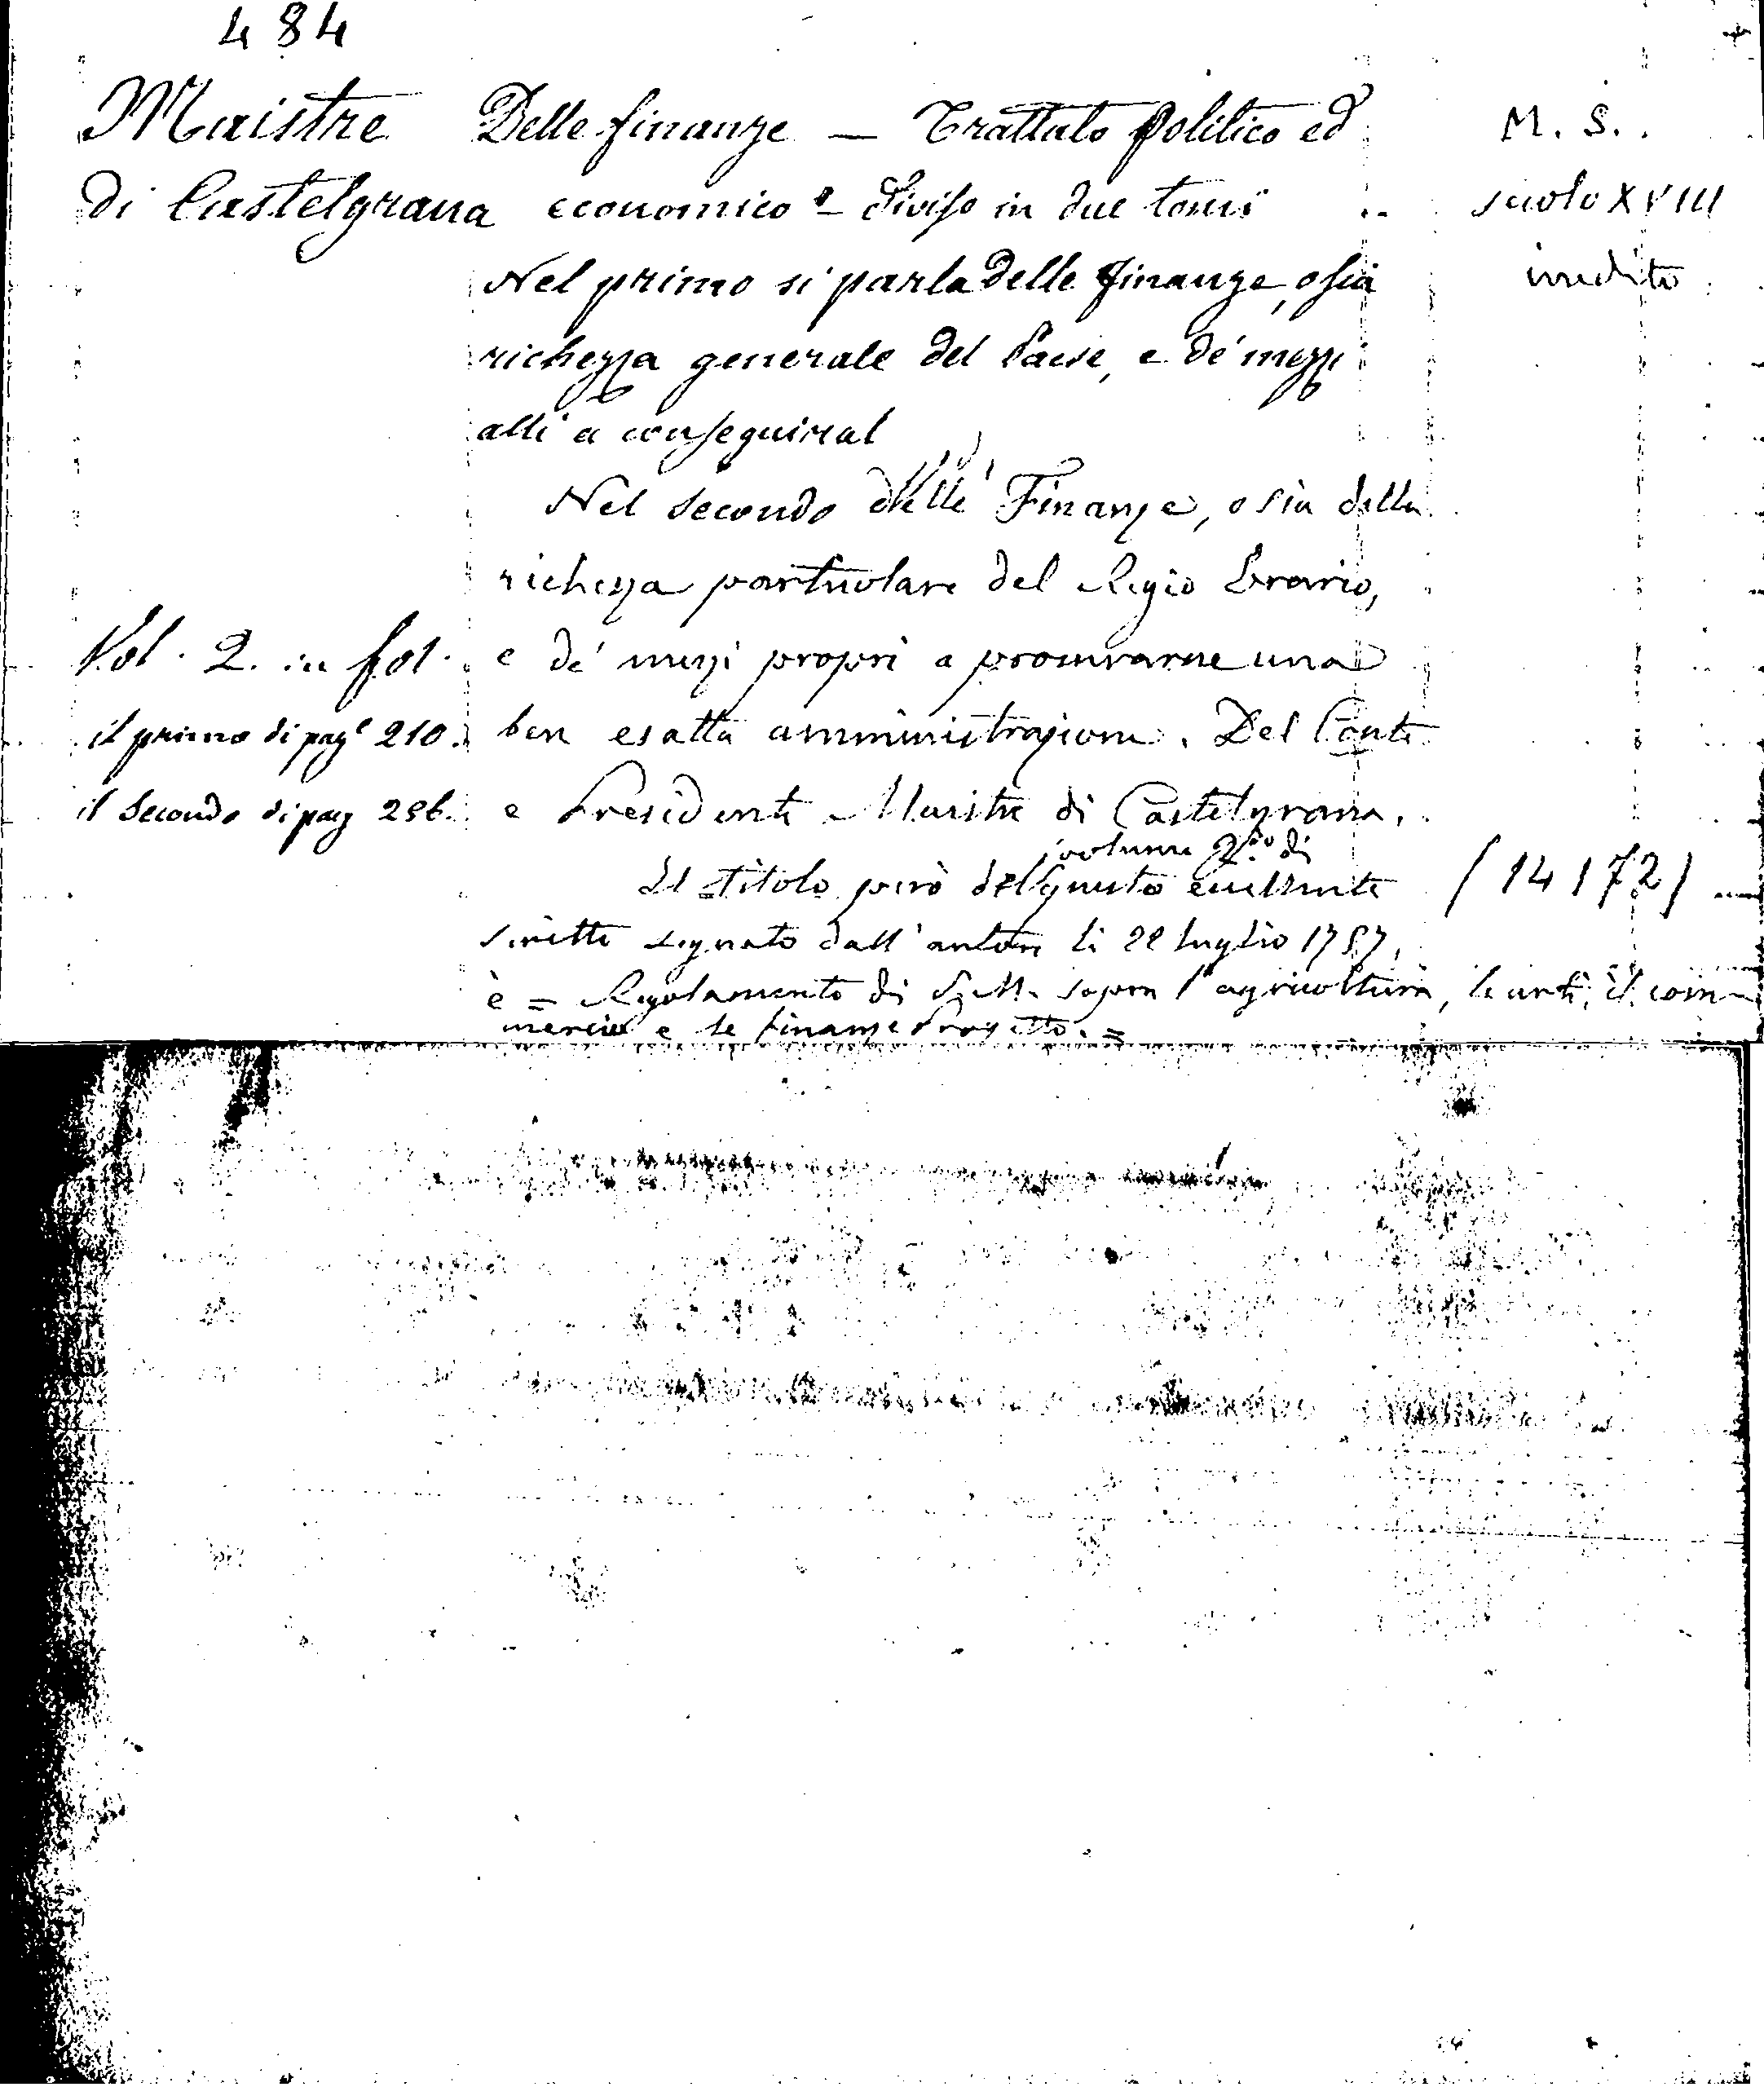 484
Maistre Delle finanze — Trattato Politico ed M. S.
di Castelgrana economico - diviso in due tomi secolo XVIII
Nel primo si parla delle finanze, osia inedito
richezza generale del Paese, e de' mezzi
atti a conseguiral
Nel secondo delle Finanze, o sia della
richezza particolare del Regio Erario,
Vol. 2. in fol. e de' mezzi propri a procurarne una
il primo di pag.e 210. ben esatta amministrazione. Del Conte
il Secondo di pag 256. e Presidente Maistre di Castelgrana.
volume 2.do di
Il titolo però del questo eccellente (14172)
scritto segnato dall'autore li 22 luglio 1757,
è = Regolamento di S. M. sopra l'agricoltura, le arti, il com-
mercio e le finanze Progetto. =